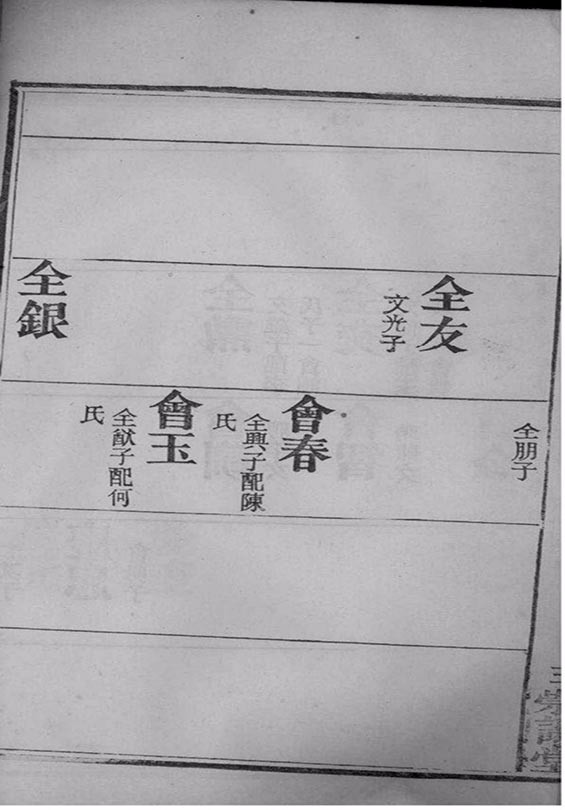 全友
文光子
全銀
全朋子
會春
全興子配陳
氏
會玉
全猷子配何
氏